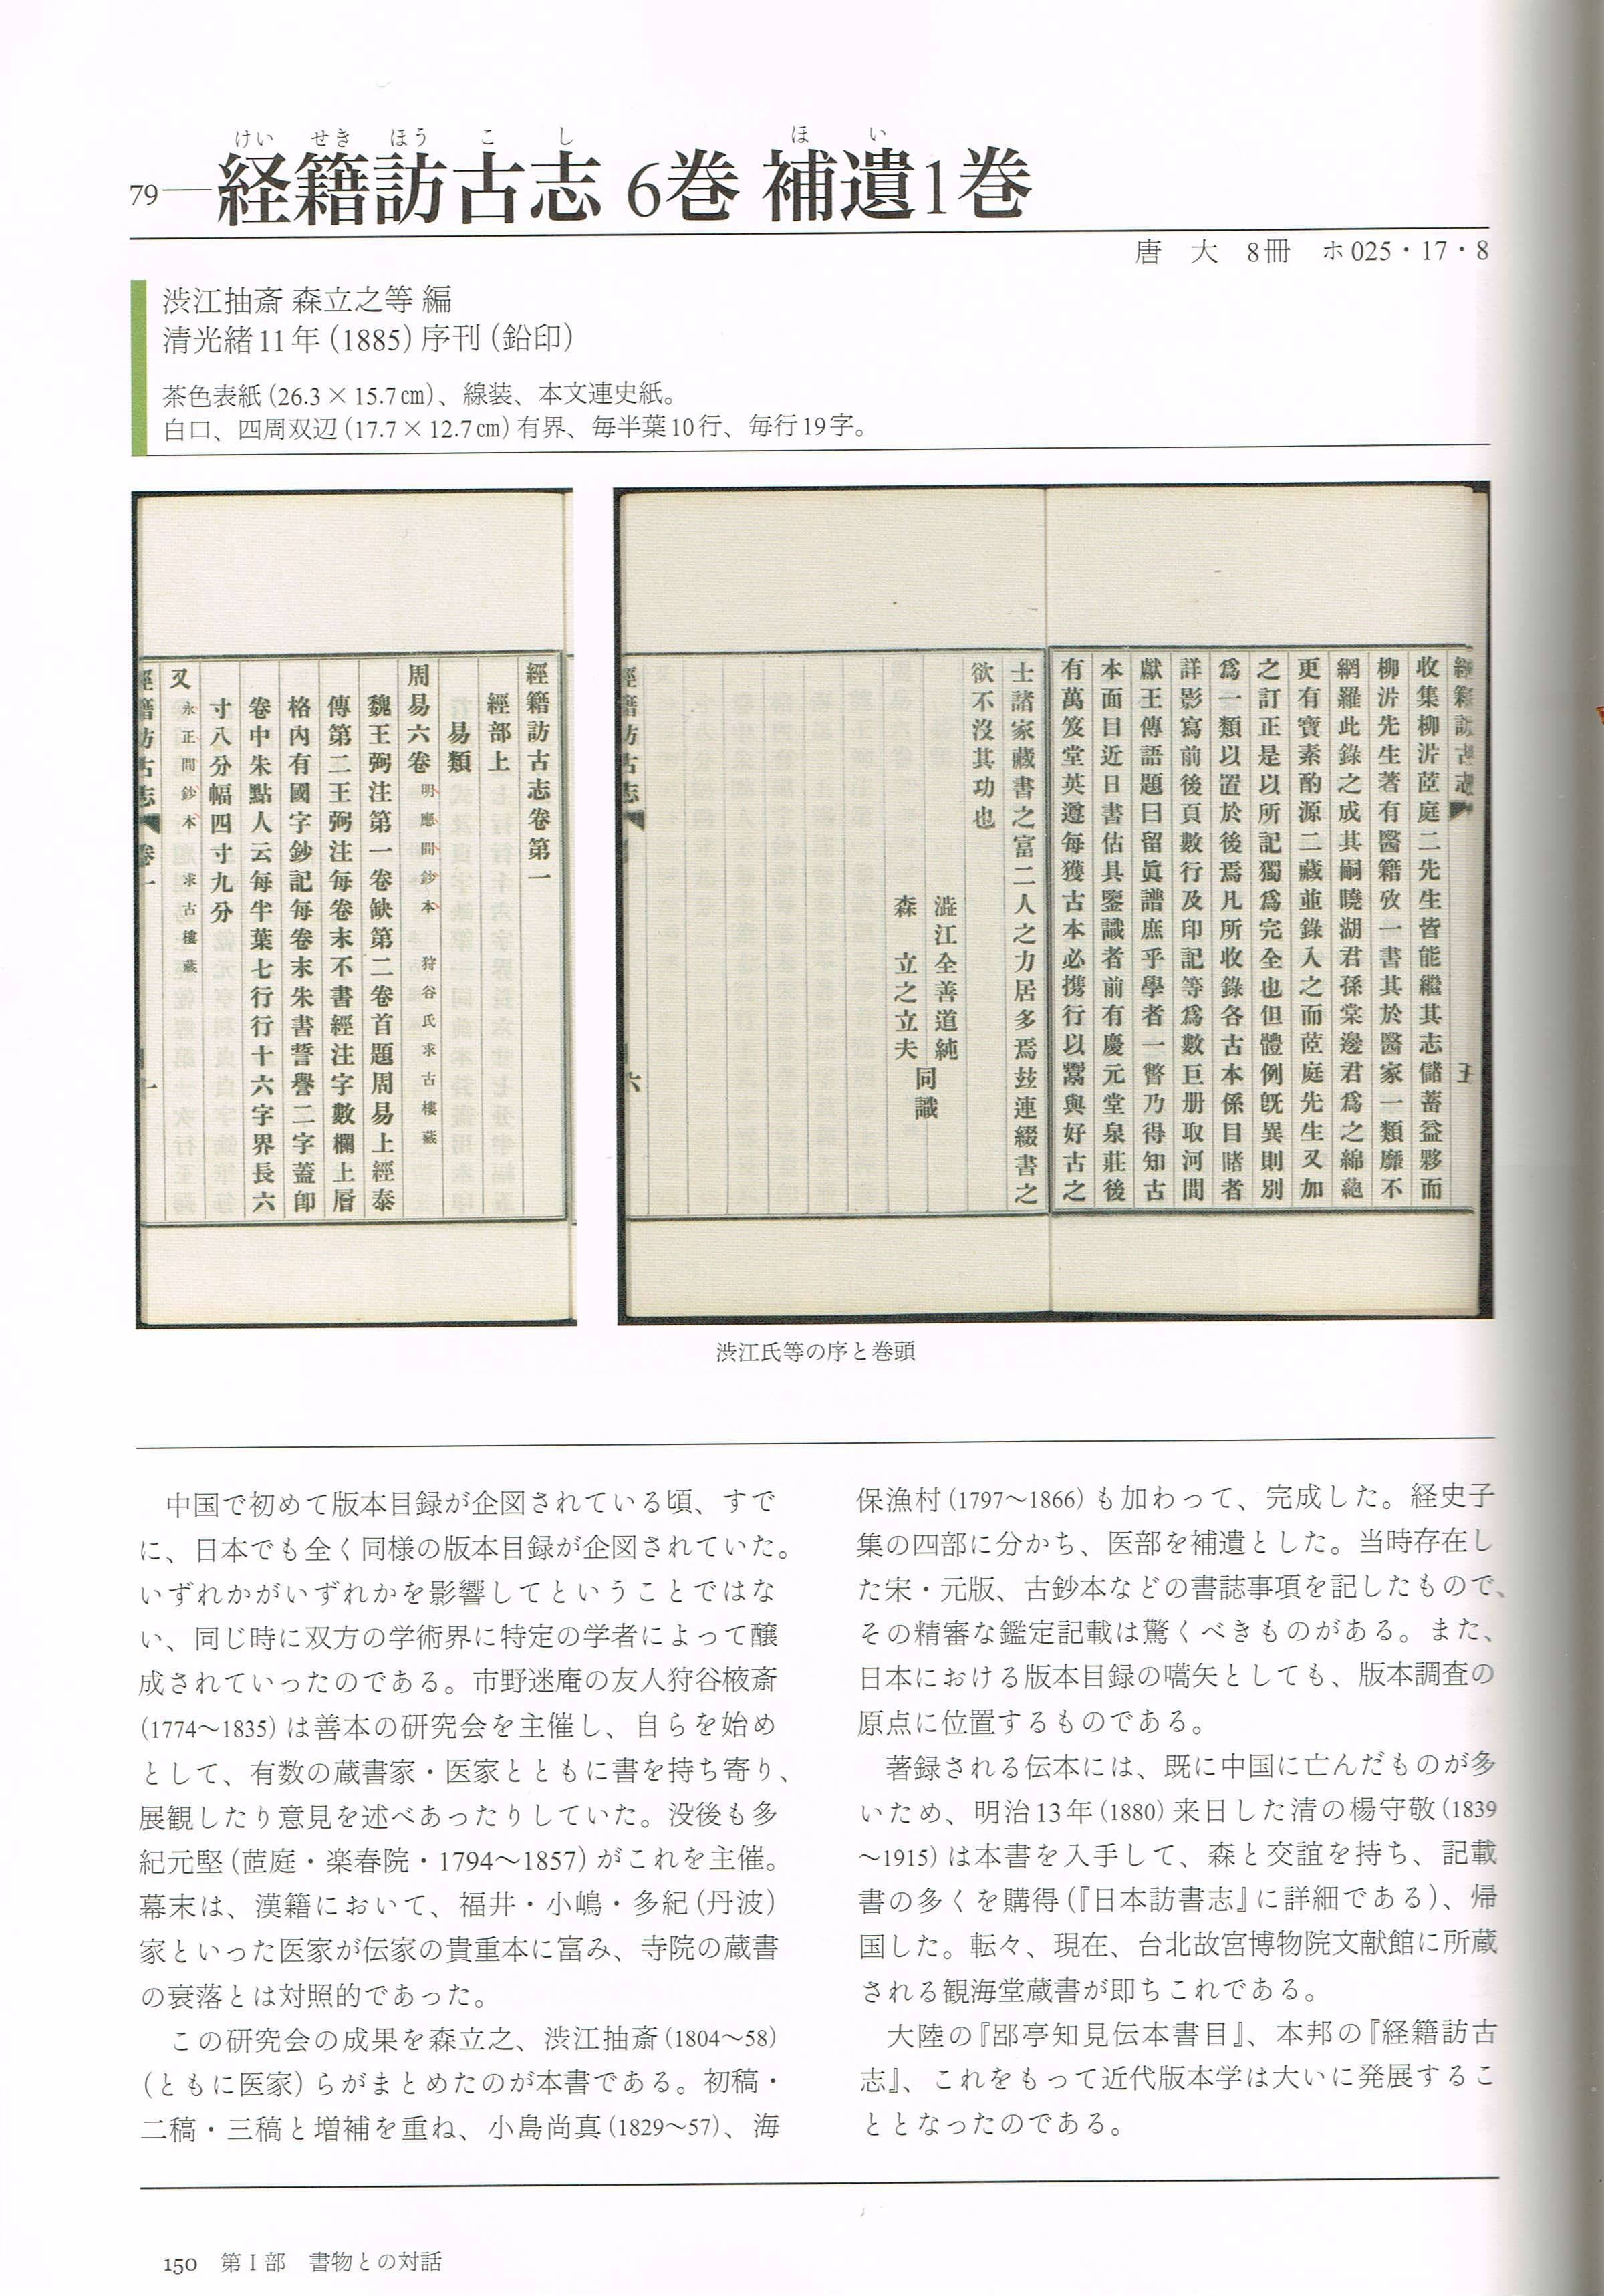 けい せき ほう こ し ほ い
79―経籍訪古志 6巻 補遺1巻
唐 大 8冊 ホ025・17・8
渋江抽斎 森立之等 編
清光緒11年(1885)序刊(鉛印)
茶色表紙(26.3×15.7㎝)、線装、本文連史紙。
白口、四周双辺(17.7×12.7㎝)有界、毎半葉10行、毎行19字。
經籍訪古志
收集柳沜茝庭二先生皆能繼其志儲蓄益夥而
柳沜先生著有醫籍攷一書其於醫家一類靡不
網羅此錄之成其嗣曉湖君孫棠邊君爲之綿蕝
更有寶素酌源二藏並錄入之而茝庭先生又加
之訂正是以所記獨爲完全也但體例旣異則別
爲一類以置於後焉凡所收錄各古本係目睹者
詳影寫前後頁數行及印記等爲數巨册取河間
獻王傳語題曰留眞譜庶乎學者一瞥乃得知古
本面目近日書估具鑒識者前有慶元堂泉莊後
有萬笈堂英遵每獲古本必携行以鬻與好古之
士諸家藏書之富二人之力居多焉玆連綴書之
欲不沒其功也
澁江全善道純
森 立之立夫
同識
經籍訪古志
六
經籍訪古志卷第一
經部上
易類
周易六卷 明應間鈔本 狩谷氏求古樓藏
魏王弼注第一卷缺第二卷首題周易上經泰
傳第二王弼注每卷末不書經注字數欄上層
格內有國字鈔記每卷末朱書誓譽二字蓋卽
卷中朱點人云每半葉七行行十六字界長六
寸八分幅四寸九分
又 永正間鈔本 求古樓藏
經籍訪古志 卷一
渋江氏等の序と巻頭
中国で初めて版本目録が企図されている頃、すで
に、日本でも全く同様の版本目録が企図されていた。
いずれかがいずれかを影響してということではな
い、同じ時に双方の学術界に特定の学者によって醸
成されていったのである。市野迷庵の友人狩谷棭斎
(1774～1835)は善本の研究会を主催し、自らを始め
として、有数の蔵書家・医家とともに書を持ち寄り、
展観したり意見を述べあったりしていた。没後も多
紀元堅(茝庭・楽春院・1794～1857)がこれを主催。
幕末は、漢籍において、福井・小嶋・多紀(丹波)
家といった医家が伝家の貴重本に富み、寺院の蔵書
の衰落とは対照的であった。
この研究会の成果を森立之、渋江抽斎(1804～58)
(ともに医家)らがまとめたのが本書である。初稿・
二稿・三稿と増補を重ね、小島尚真(1829～57)、海
保漁村(1797～1866)も加わって、完成した。経史子
集の四部に分かち、医部を補遺とした。当時存在し
た宋・元版、古鈔本などの書誌事項を記したもので、
その精審な鑑定記載は驚くべきものがある。また、
日本における版本目録の嚆矢としても、版本調査の
原点に位置するものである。
著録される伝本には、既に中国に亡んだものが多
いため、明治13年(1880)来日した清の楊守敬(1839
～1915)は本書を入手して、森と交誼を持ち、記載
書の多くを購得(『日本訪書志』に詳細である)、帰
国した。転々、現在、台北故宮博物院文献館に所蔵
される観海堂蔵書が即ちこれである。
大陸の『郘亭知見伝本書目』、本邦の『経籍訪古
志』、これをもって近代版本学は大いに発展するこ
ととなったのである。
150 第Ⅰ部 書物との対話